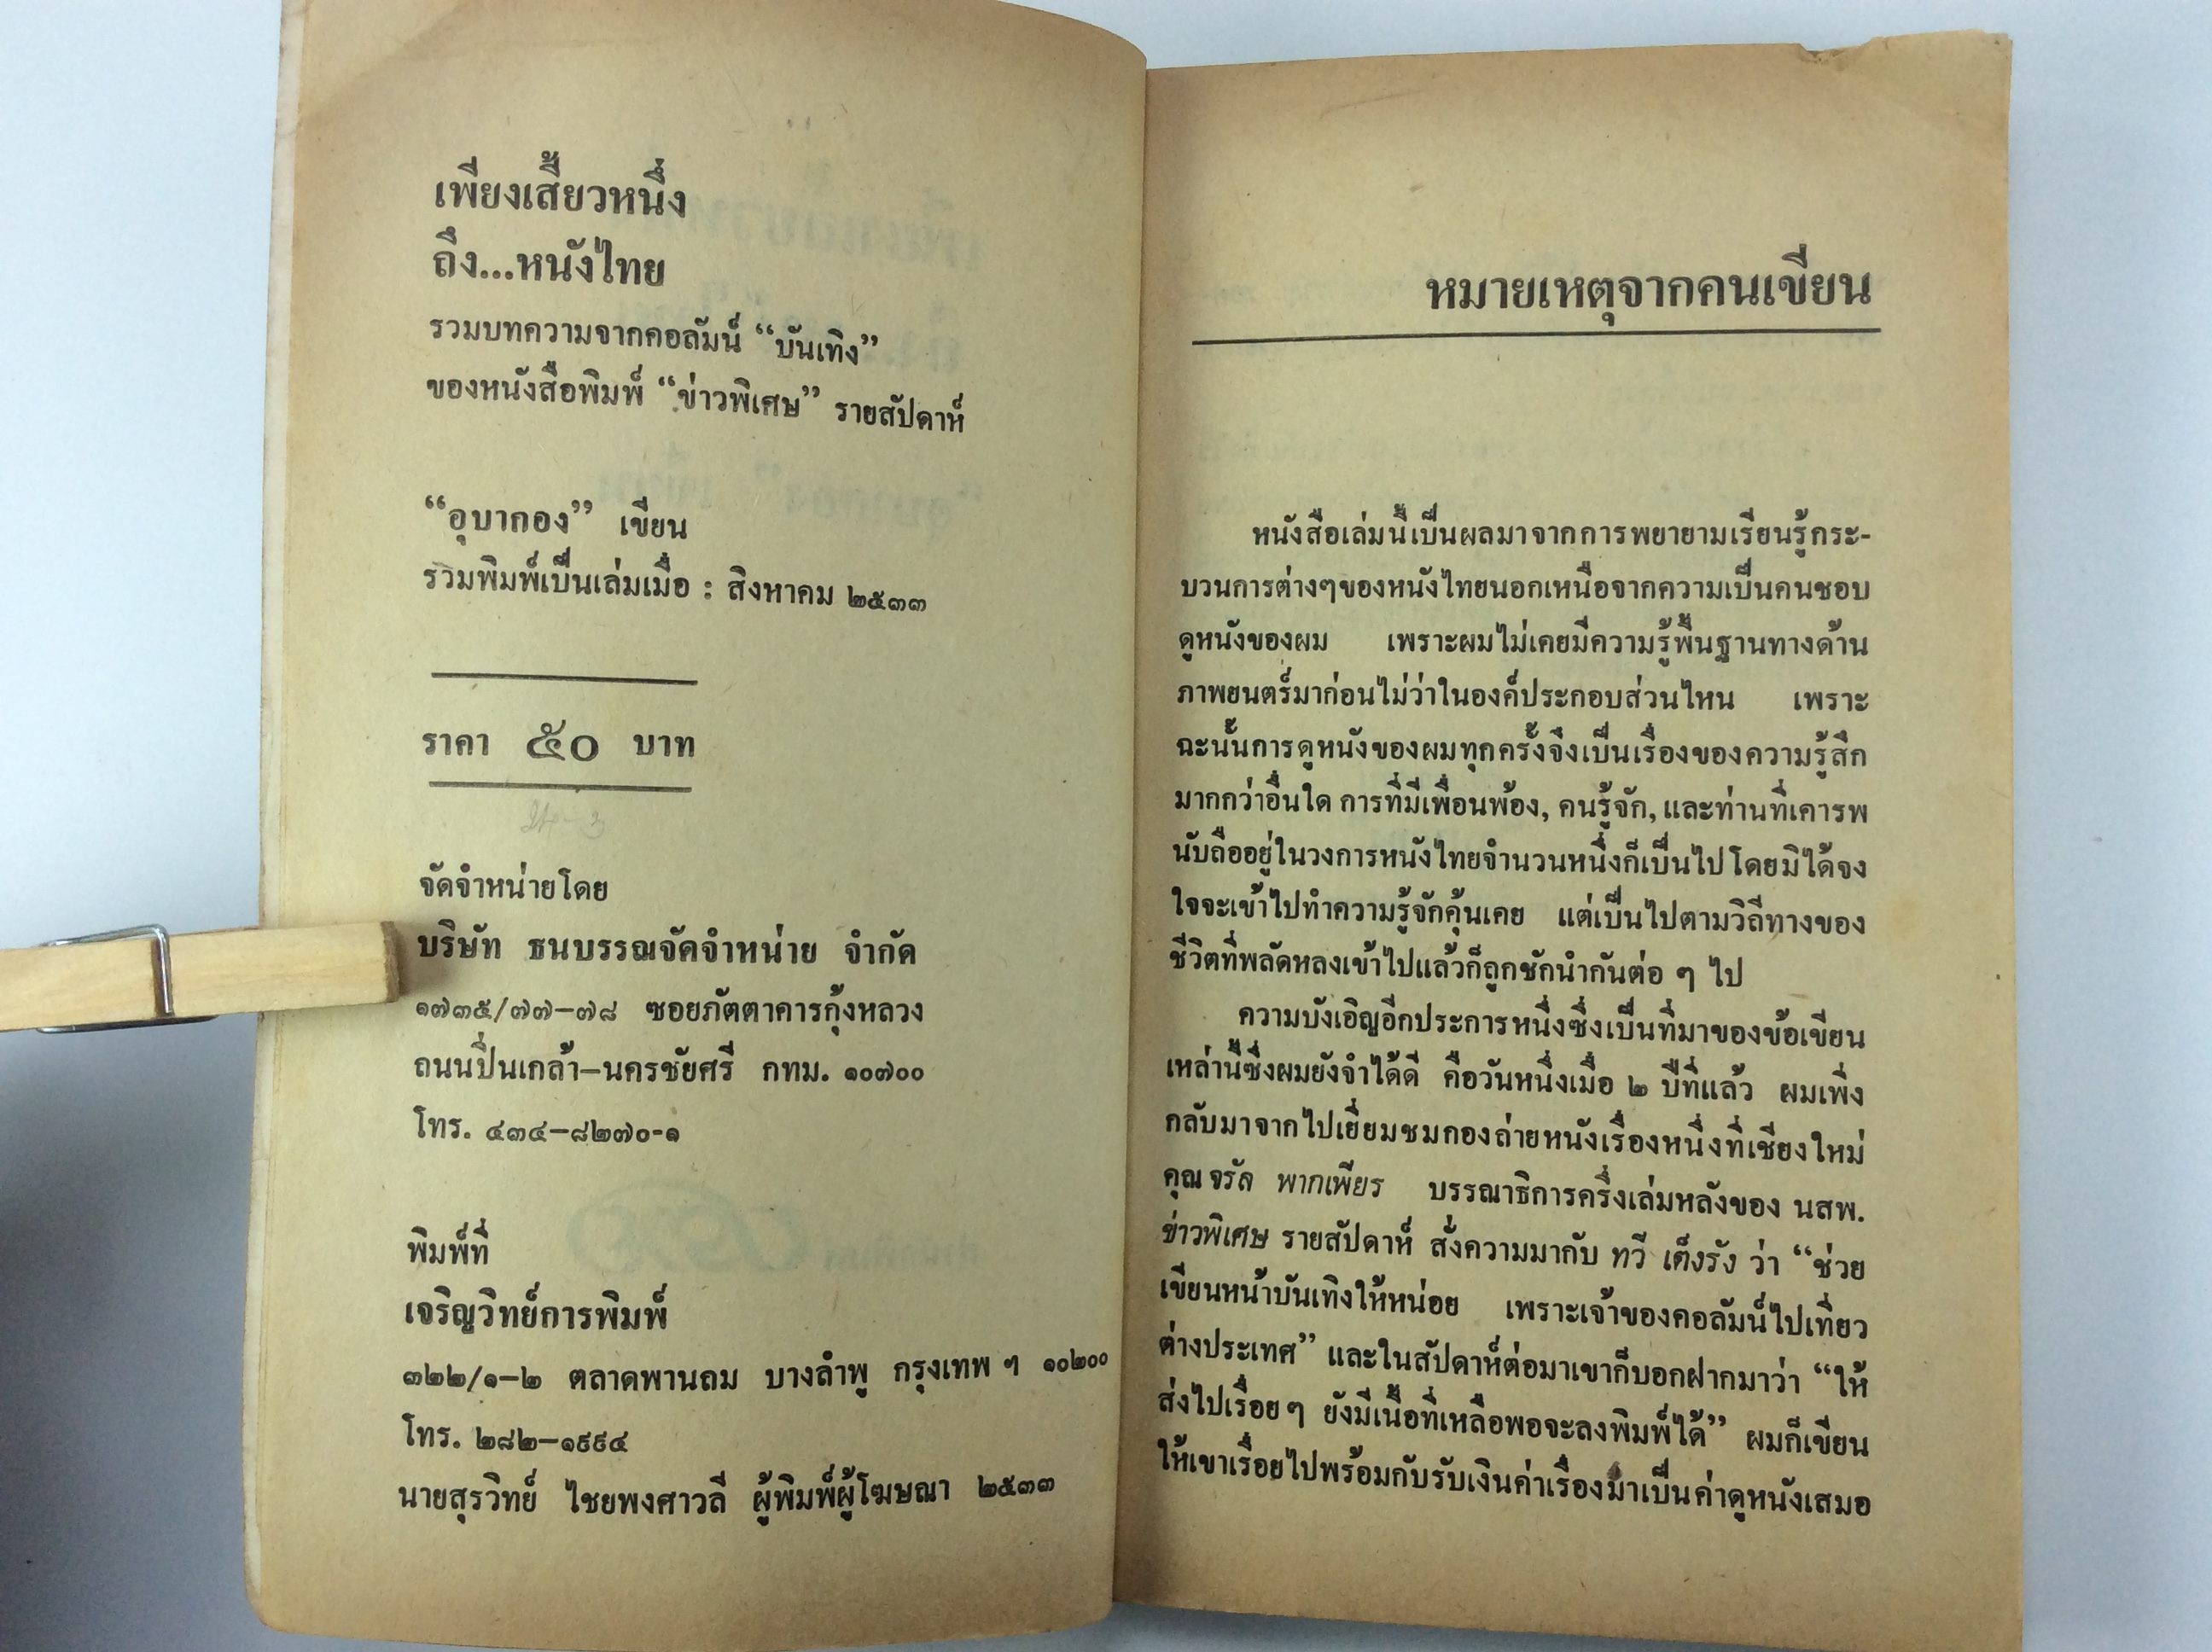 เพียงเสี้ยวหนึ่ง
ถึง...หนังไทย
รวมบทความจากคอลัมน์ “บันเทิง”
ของหนังสือพิมพ์ “ข่าวพิเศษ” รายสัปดาห์
“อุบากอง” เขียน
รวมพิมพ์เป็นเล่มเมื่อ : สิงหาคม ๒๕๓๓
ราคา ๕๐ บาท
จัดจำหน่ายโดย
บริษัท ธนบรรณจัดจำหน่าย จำกัด
๑๗๓๕/๗๗–๗๘ ซอยภัตตาคารกุ้งหลวง
ถนนปิ่นเกล้า–นครชัยศรี กทม. ๑๐๗๐๐
โทร. ๔๓๔–๘๒๗๐-๑
พิมพ์ที่
เจริญวิทย์การพิมพ์
๓๒๒/๑–๒ ตลาดพานถม บางลำพู กรุงเทพ ฯ ๑๐๒๐๐
โทร. ๒๘๒–๑๙๙๔
นายสุรวิทย์ ไชยพงศาวลี ผู้พิมพ์ผู้โฆษณา ๒๕๓๓
หมายเหตุจากคนเขียน
หนังสือเล่มนี้เป็นผลมาจากการพยายามเรียนรู้กระ-
บวนการต่างๆของหนังไทยนอกเหนือจากความเป็นคนชอบ
ดูหนังของผม เพราะผมไม่เคยมีความรู้พื้นฐานทางด้าน
ภาพยนตร์มาก่อนไม่ว่าในองค์ประกอบส่วนไหน เพราะ
ฉะนั้นการดูหนังของผมทุกครั้งจึงเป็นเรื่องของความรู้สึก
มากกว่าอื่นใด การที่มีเพื่อนพ้อง, คนรู้จัก, และท่านที่เคารพ
นับถืออยู่ในวงการหนังไทยจำนวนหนึ่งก็เป็นไป โดยมิได้จง
ใจจะเข้าไปทำความรู้จักคุ้นเคย แต่เป็นไปตามวิถีทางของ
ชีวิตที่พลัดหลงเข้าไปแล้วก็ถูกชักนำกันต่อ ๆ ไป
ความบังเอิญอีกประการหนึ่งซึ่งเป็นที่มาของข้อเขียน
เหล่านี้ซึ่งผมยังจำได้ดี คือวันหนึ่งเมื่อ ๒ ปีที่แล้ว ผมเพิ่ง
กลับมาจากไปเยี่ยมชมกองถ่ายหนังเรื่องหนึ่งที่เชียงใหม่
คุณ จรัล พากเพียร บรรณาธิการครึ่งเล่มหลังของ นสพ.
ข่าวพิเศษ รายสัปดาห์ สั่งความมากับ ทวี เต็งรัง ว่า “ช่วย
เขียนหน้าบันเทิงให้หน่อย เพราะเจ้าของคอลัมน์ไปเที่ยว
ต่างประเทศ” และในสัปดาห์ต่อมาเขาก็บอกฝากมาว่า “ให้
ส่งไปเรื่อย ๆ ยังมีเนื้อที่เหลือพอจะลงพิมพ์ได้” ผมก็เขียน
ให้เขาเรื่อยไปพร้อมกับรับเงินค่าเรื่องมาเป็นค่าดูหนังเสมอ